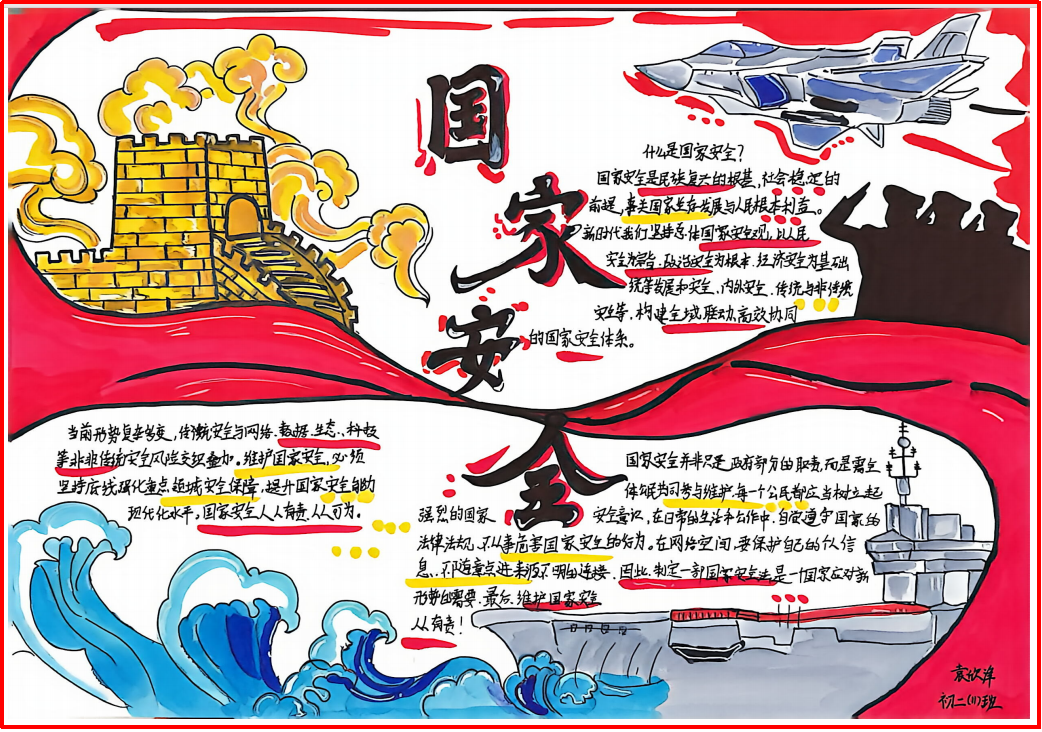 国家安全
什么是国家安全？
国家安全是民族复兴的根基，社会稳定的
前提，事关国家生存发展与人民根本利益。
新时代我们坚持总体国家安全观，以人民
安全为宗旨、政治安全为根本、经济安全为基础
统筹发展和安全、内外安全、传统与非传统
安全等，构建全域联动、高效协同
的国家安全体系。
当前形势复杂多变，传统安全与网络、数据、生态、科技
等非传统安全风险交织叠加。维护国家安全，必须
坚持底线强化重点领域安全保障，提升国家安全自助
现代化水平，国家安全人人有责，人人可为。
国家安全并非只是政府部分的职责，而是需全
体公民共同参与维护，每一个公民都应当树立起
强烈的国家安全意识，在日常的生活和工作中，自觉遵守国家的
法律法规，不从事危害国家安全的行为。在网络空间，要保护自己的个人信
息，不随意点进来源不明的连接，因此，制定一部国家安全法是一个国家应对新
形势的需要，最后，维护国家安全
人人有责！
袁欣洋
初二(11)班